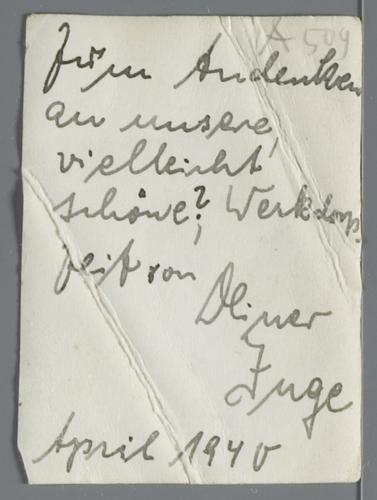 A 509
Zum Andenken
an unsere,
vielleicht
schöne?, Werkdorp-
zeit von
Inge
April 1940